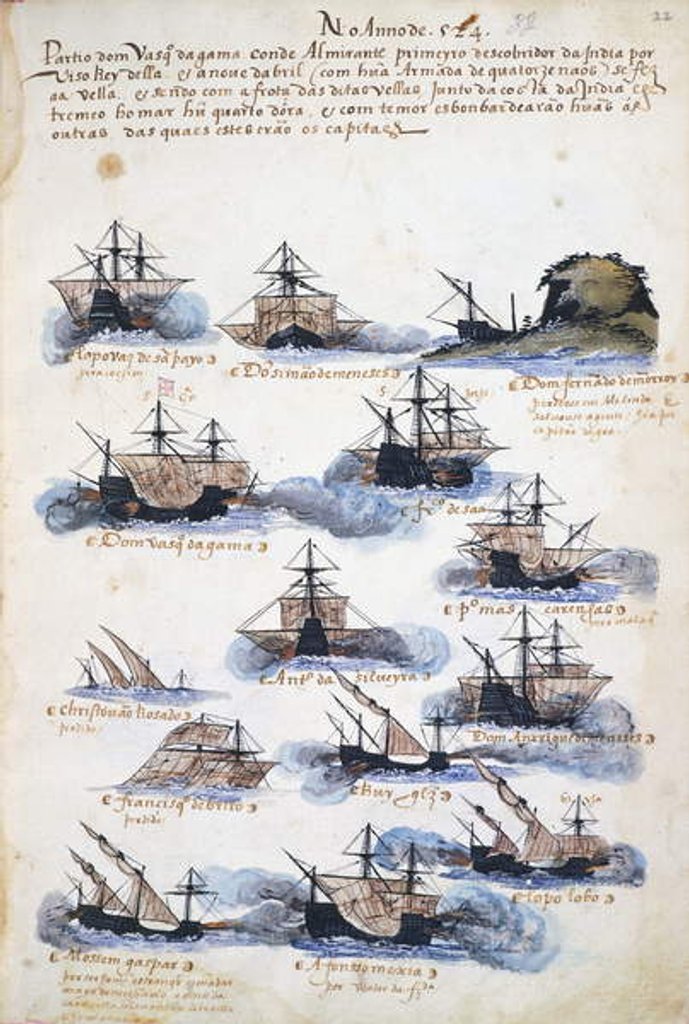 22
No Anno de . 524.
Partio dom Vasq̃ da gama conde Almirante primeyro descobridor da India por
Viso Rey della . es a noue dabril (com hũa Armada de quatorze naos) se fez
aa vella . es sẽdo com a frota das ditas vellas Junto da costa da India es
tremeo ho mar hũ quarto dóra , e com temor esbonbardearão hũas ás
outras das quaes estes erão os capitaẽs
Lopo vaz de sã payo
Dõ simão de meneses
Dom fernãdo de mõrroy
Dom vasq̃ da gama
fr.co de saa
P.o mas carenhas
Ant.o da silueyra
Christouão Rosado
perdido
Dom Anrrique de meneses
francisq.o de brito
perdido
Ruy glz̃
Lopo lobo
Mossem gaspar
Afonsso mexia
por Veador da fz.da